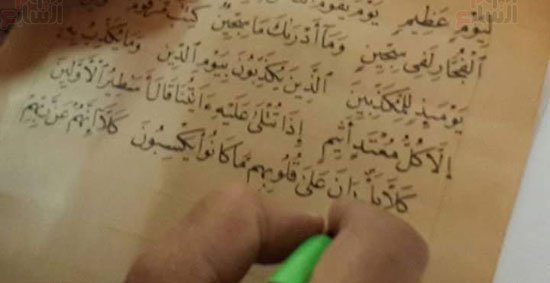 لِيَوْمٍ عَظِيمٍ يَوْمَ يَقُومُ
ٱلْفُجَّارِ لَفِي سِجِّينٍ وَمَآ أَدْرَىٰكَ مَا سِجِّينٌ كِتَٰبٌ مَّرْقُومٌ
يَوْمَئِذٍ لِّلْمُكَذِّبِينَ ٱلَّذِينَ يُكَذِّبُونَ بِيَوْمِ ٱلدِّينِ وَمَا يُكَذِّبُ بِهِ
إِلَّا كُلُّ مُعْتَدٍ أَثِيمٍ إِذَا تُتْلَىٰ عَلَيْهِ ءَايَٰتُنَا قَالَ أَسَٰطِيرُ ٱلْأَوَّلِينَ
كَلَّا بَلْ رَانَ عَلَىٰ قُلُوبِهِم مَّا كَانُوا۟ يَكْسِبُونَ كَلَّآ إِنَّهُمْ عَن رَّبِّهِمْ